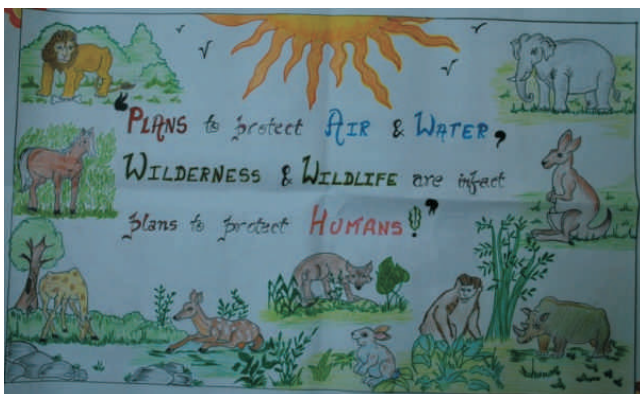 "PLANS to protect AIR & WATER,
WILDERNESS & WILDLIFE are infact
plans to protect HUMANS!"